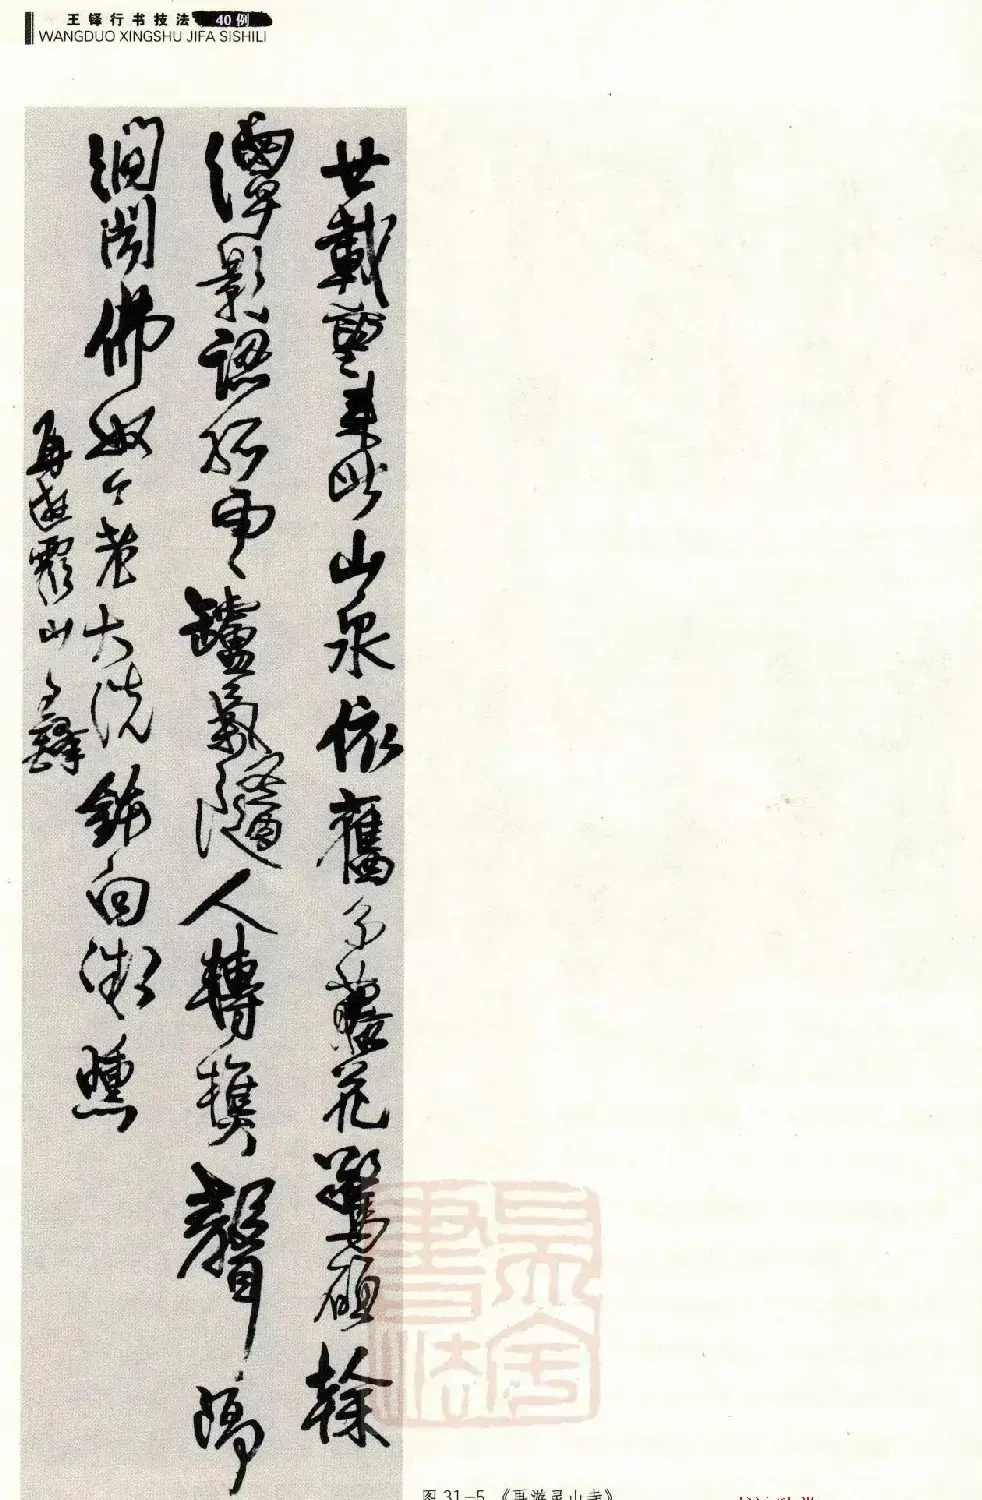 王铎行书技法 40例
WANGDUO XINGSHU JIFA SISHILI
廿載重來此山泉依舊分藤花驚碩幹
潭影認孤雲罏氣隨人轉舊聲隔
澗聞佛奴今老大洗鉢向微曛
再遊靈山寺 鐸
图 31-5 《再游灵山寺》
吴金书法